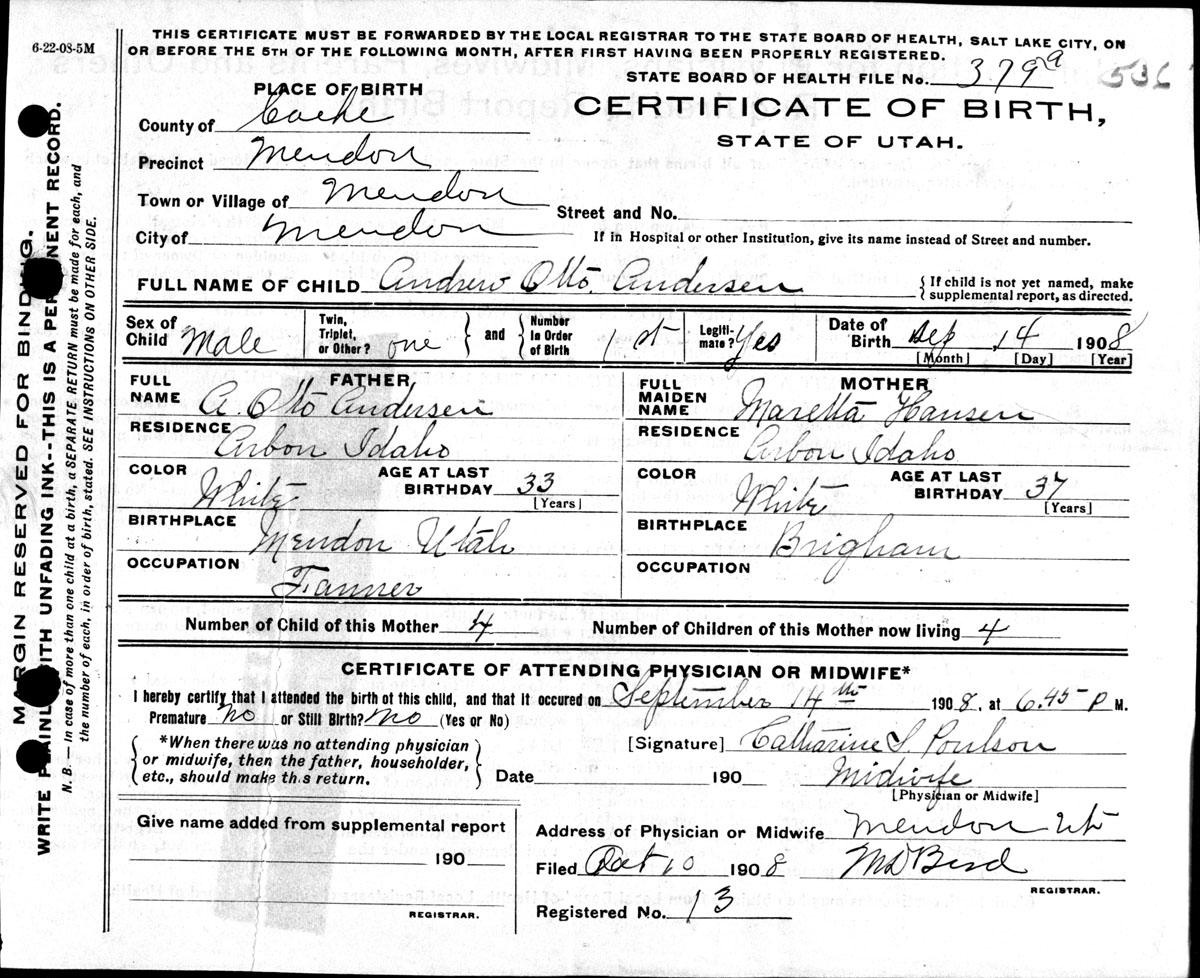 6-22-08-5M
THIS CERTIFICATE MUST BE FORWARDED BY THE LOCAL REGISTRAR TO THE STATE BOARD OF HEALTH, SALT LAKE CITY, ON
OR BEFORE THE 5TH OF THE FOLLOWING MONTH, AFTER FIRST HAVING BEEN PROPERLY REGISTERED.
STATE BOARD OF HEALTH FILE No. 379a 536
PLACE OF BIRTH
CERTIFICATE OF BIRTH,
STATE OF UTAH.
County of Cache
Precinct Mendon
Town or Village of Mendon
Street and No.
City of Mendon
If in Hospital or other Institution, give its name instead of Street and number.
FULL NAME OF CHILD Andrew Otto Andersen
{If child is not yet named, make
supplemental report, as directed.
Sex of Child Male
Twin, Triplet, or Other? one } and { Number In Order of Birth 1st
Legitimate? Yes
Date of Birth Sep 14 1908
[Month] [Day] [Year]
FATHER
FULL NAME A. Otto Andersen
RESIDENCE Arbon Idaho
COLOR White
AGE AT LAST BIRTHDAY 33
[Years]
BIRTHPLACE Mendon Utah
OCCUPATION Farmer
MOTHER
FULL MAIDEN NAME Maretta Hansen
RESIDENCE Arbon Idaho
COLOR White
AGE AT LAST BIRTHDAY 37
[Years]
BIRTHPLACE Brigham
OCCUPATION
Number of Child of this Mother 4
Number of Children of this Mother now living 4
CERTIFICATE OF ATTENDING PHYSICIAN OR MIDWIFE*
I hereby certify that I attended the birth of this child, and that it occured on September 14th 1908. at 6.45 P M.
Premature No or Still Birth? No (Yes or No)
{*When there was no attending physician
or midwife, then the father, householder,
etc., should make this return.}
[Signature] Catharine S. Poulson
Date 190
Midwife
[Physician or Midwife]
Give name added from supplemental report
190
REGISTRAR.
Address of Physician or Midwife Mendon Ut
Filed Oct 10 1908
M D Bird
REGISTRAR.
Registered No. 13
MARGIN RESERVED FOR BINDING.
WRITE PLAINLY WITH UNFADING INK--THIS IS A PERMANENT RECORD.
N. B.—In case of more than one child at a birth, a SEPARATE RETURN must be made for each, and
the number of each, in order of birth, stated. SEE INSTRUCTIONS ON OTHER SIDE.